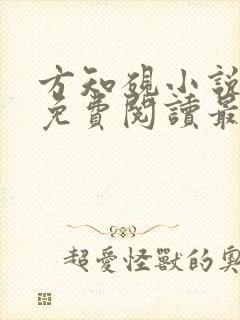 方知硯小說
免費閱讀最
超愛怪獸的奧